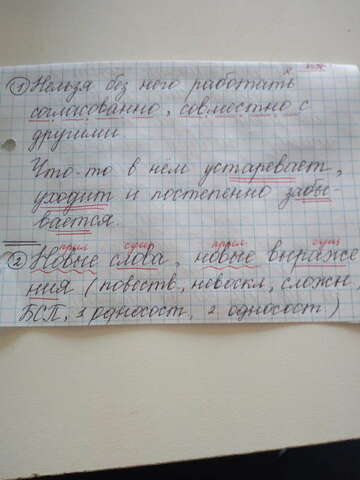 ① Нельзя без него работать
согласованно, совместно с
другими.
Что-то в нём устаревает,
уходит и постепенно забы-
вается.
прил сущ прил сущ
② Новые слова, новые выраже
ния (повеств, невоскл, сложн,
БСП, 2 односост)